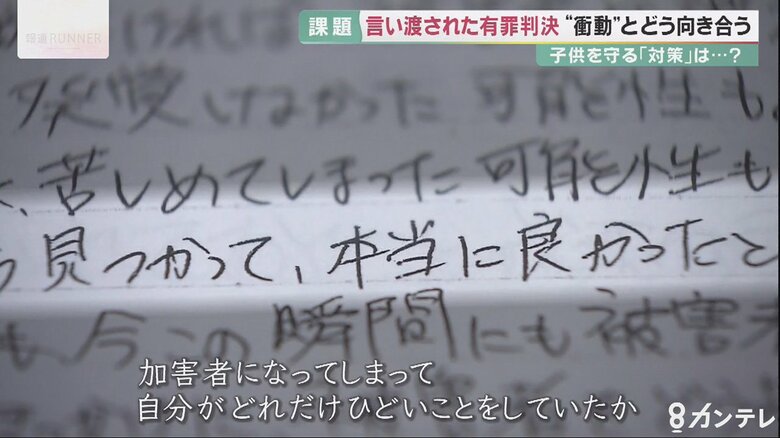 報道RUNNER
課題 言い渡された有罪判決 “衝動”とどう向き合う
子供を守る「対策」は…?
けなかった 可能性も
苦しめてしまった可能性も
見つかって、本当に良かったと
も、今この瞬間にも被害
加害者になってしまって
自分がどれだけひどいことをしていたか
8カンテレ